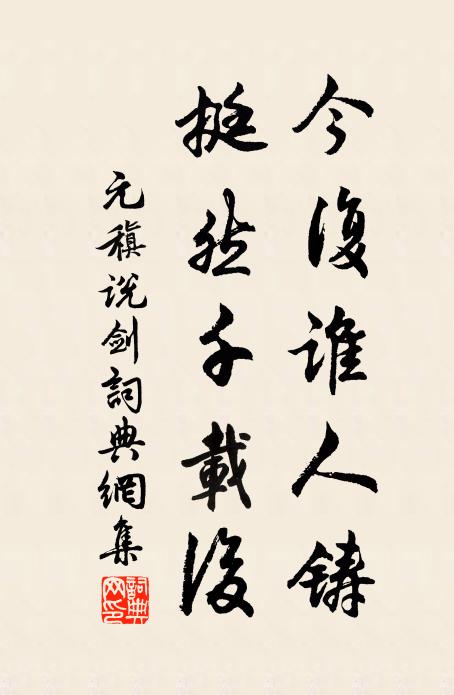 今復誰人鑄
挺然千載後
元稹說劍詞典網集
詞典網印